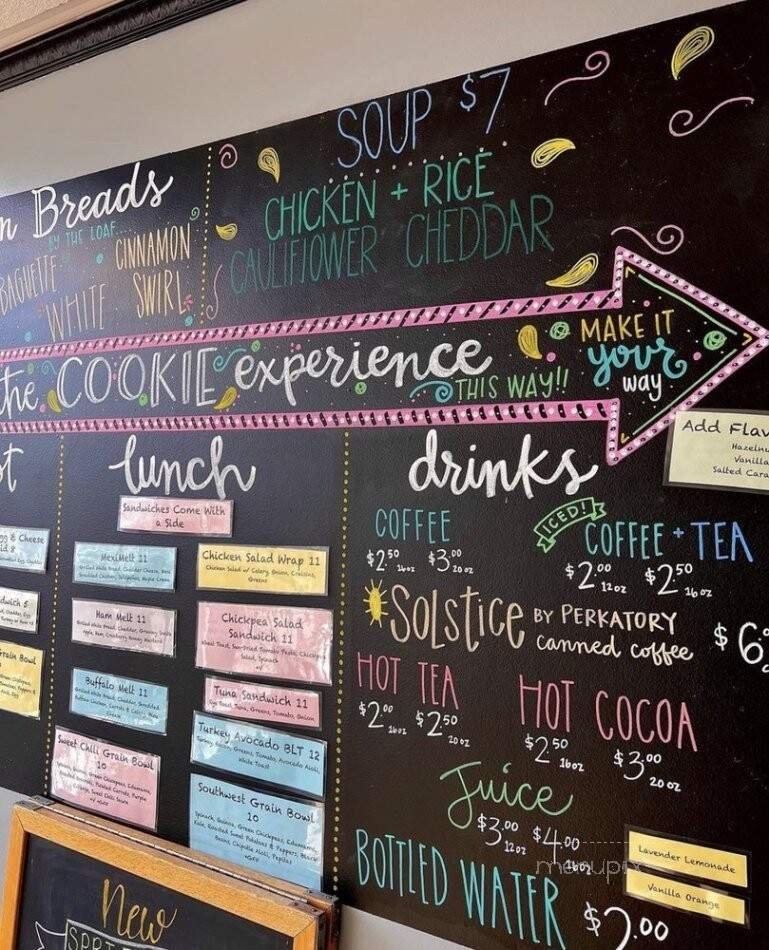 SOUP $7
CHICKEN + RICE
CAULIFLOWER CHEDDAR
n Breads
BY THE LOAF...
BAGUETTE
WHITE
CINNAMON
SWIRL
the COOKIE experience
THIS WAY!!
MAKE IT
your
way
lunch
Sandwiches Come With
a Side
MexiMelt 11
Ham Melt 11
Buffalo Melt 11
Sweet Chili Grain Bowl
10
Chicken Salad Wrap 11
Chicken Salad w/ Celery, Onion, Craisins,
Greens
Chickpea Salad
Sandwich 11
Tuna Sandwich 11
Rye Toast, Tuna, Greens, Tomato, Onion
Turkey Avocado BLT 12
Turkey, Bacon, Greens, Tomato, Avocado Aioli,
White Toast
Southwest Grain Bowl
10
Spinach, Quinoa, Green Chickpeas, Edamame,
Kale, Roasted Sweet Potatoes & Peppers, Black
Beans, Chipotle Aioli, Pepitas
gg & Cheese
dwich 5
Grain Bowl
drinks
COFFEE
$2.50 16oz $3.00 20oz
ICED!
COFFEE + TEA
$2.00 12oz $2.50 16oz
SOLSTICE BY PERKATORY
canned coffee $6
HOT TEA
$2.00 16oz $2.50 20oz
HOT COCOA
$2.50 16oz $3.00 20oz
Juice
$3.00 12oz $4.00 16oz
BOTTLED WATER $2.00
Add Flav
Hazelnu
Vanilla
Salted Cara
Lavender Lemonade
Vanilla Orange
New
menupix